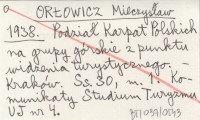 ORŁOWICZ Mieczysław
1938. Podział Karpat Polskich
na grupy górskie z punktu
widzenia turystycznego. –
Kraków. Ss. 30, m. 1. Ko-
munikaty Studium Turyzmu
UJ nr 4.